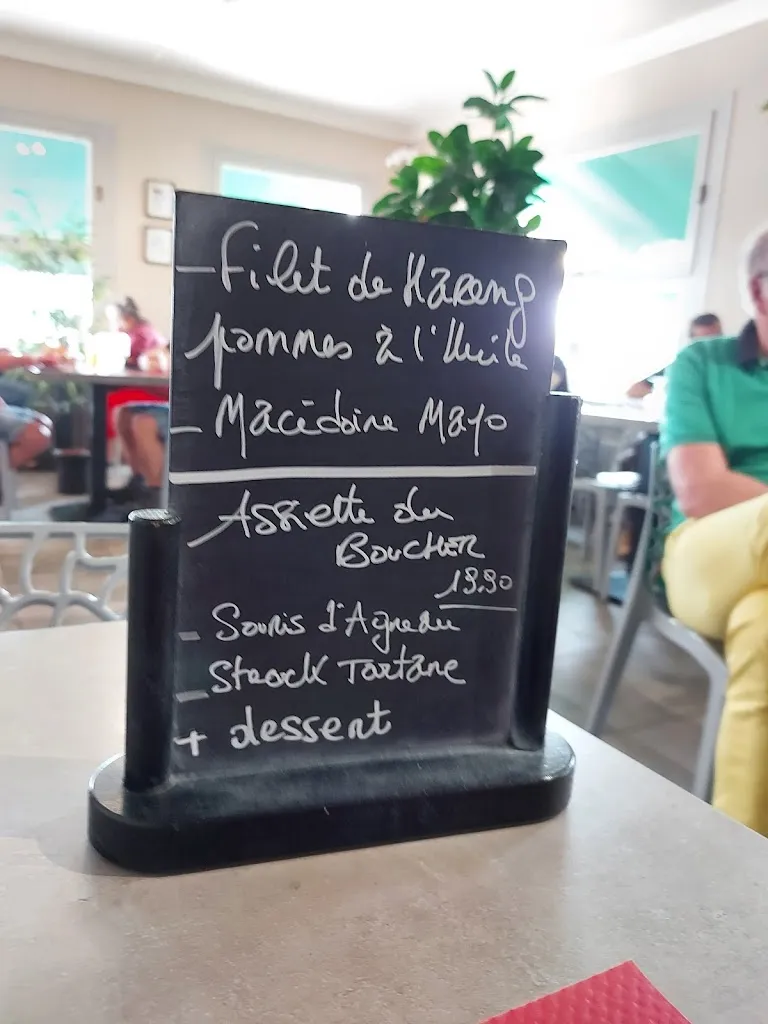 - Filet de Hareng
pommes à l'Huile
- Macédoine Mayo
Assiette du
BOUCHER
19.90
- Souris d'Agneau
- Steack Tartare
+ dessert